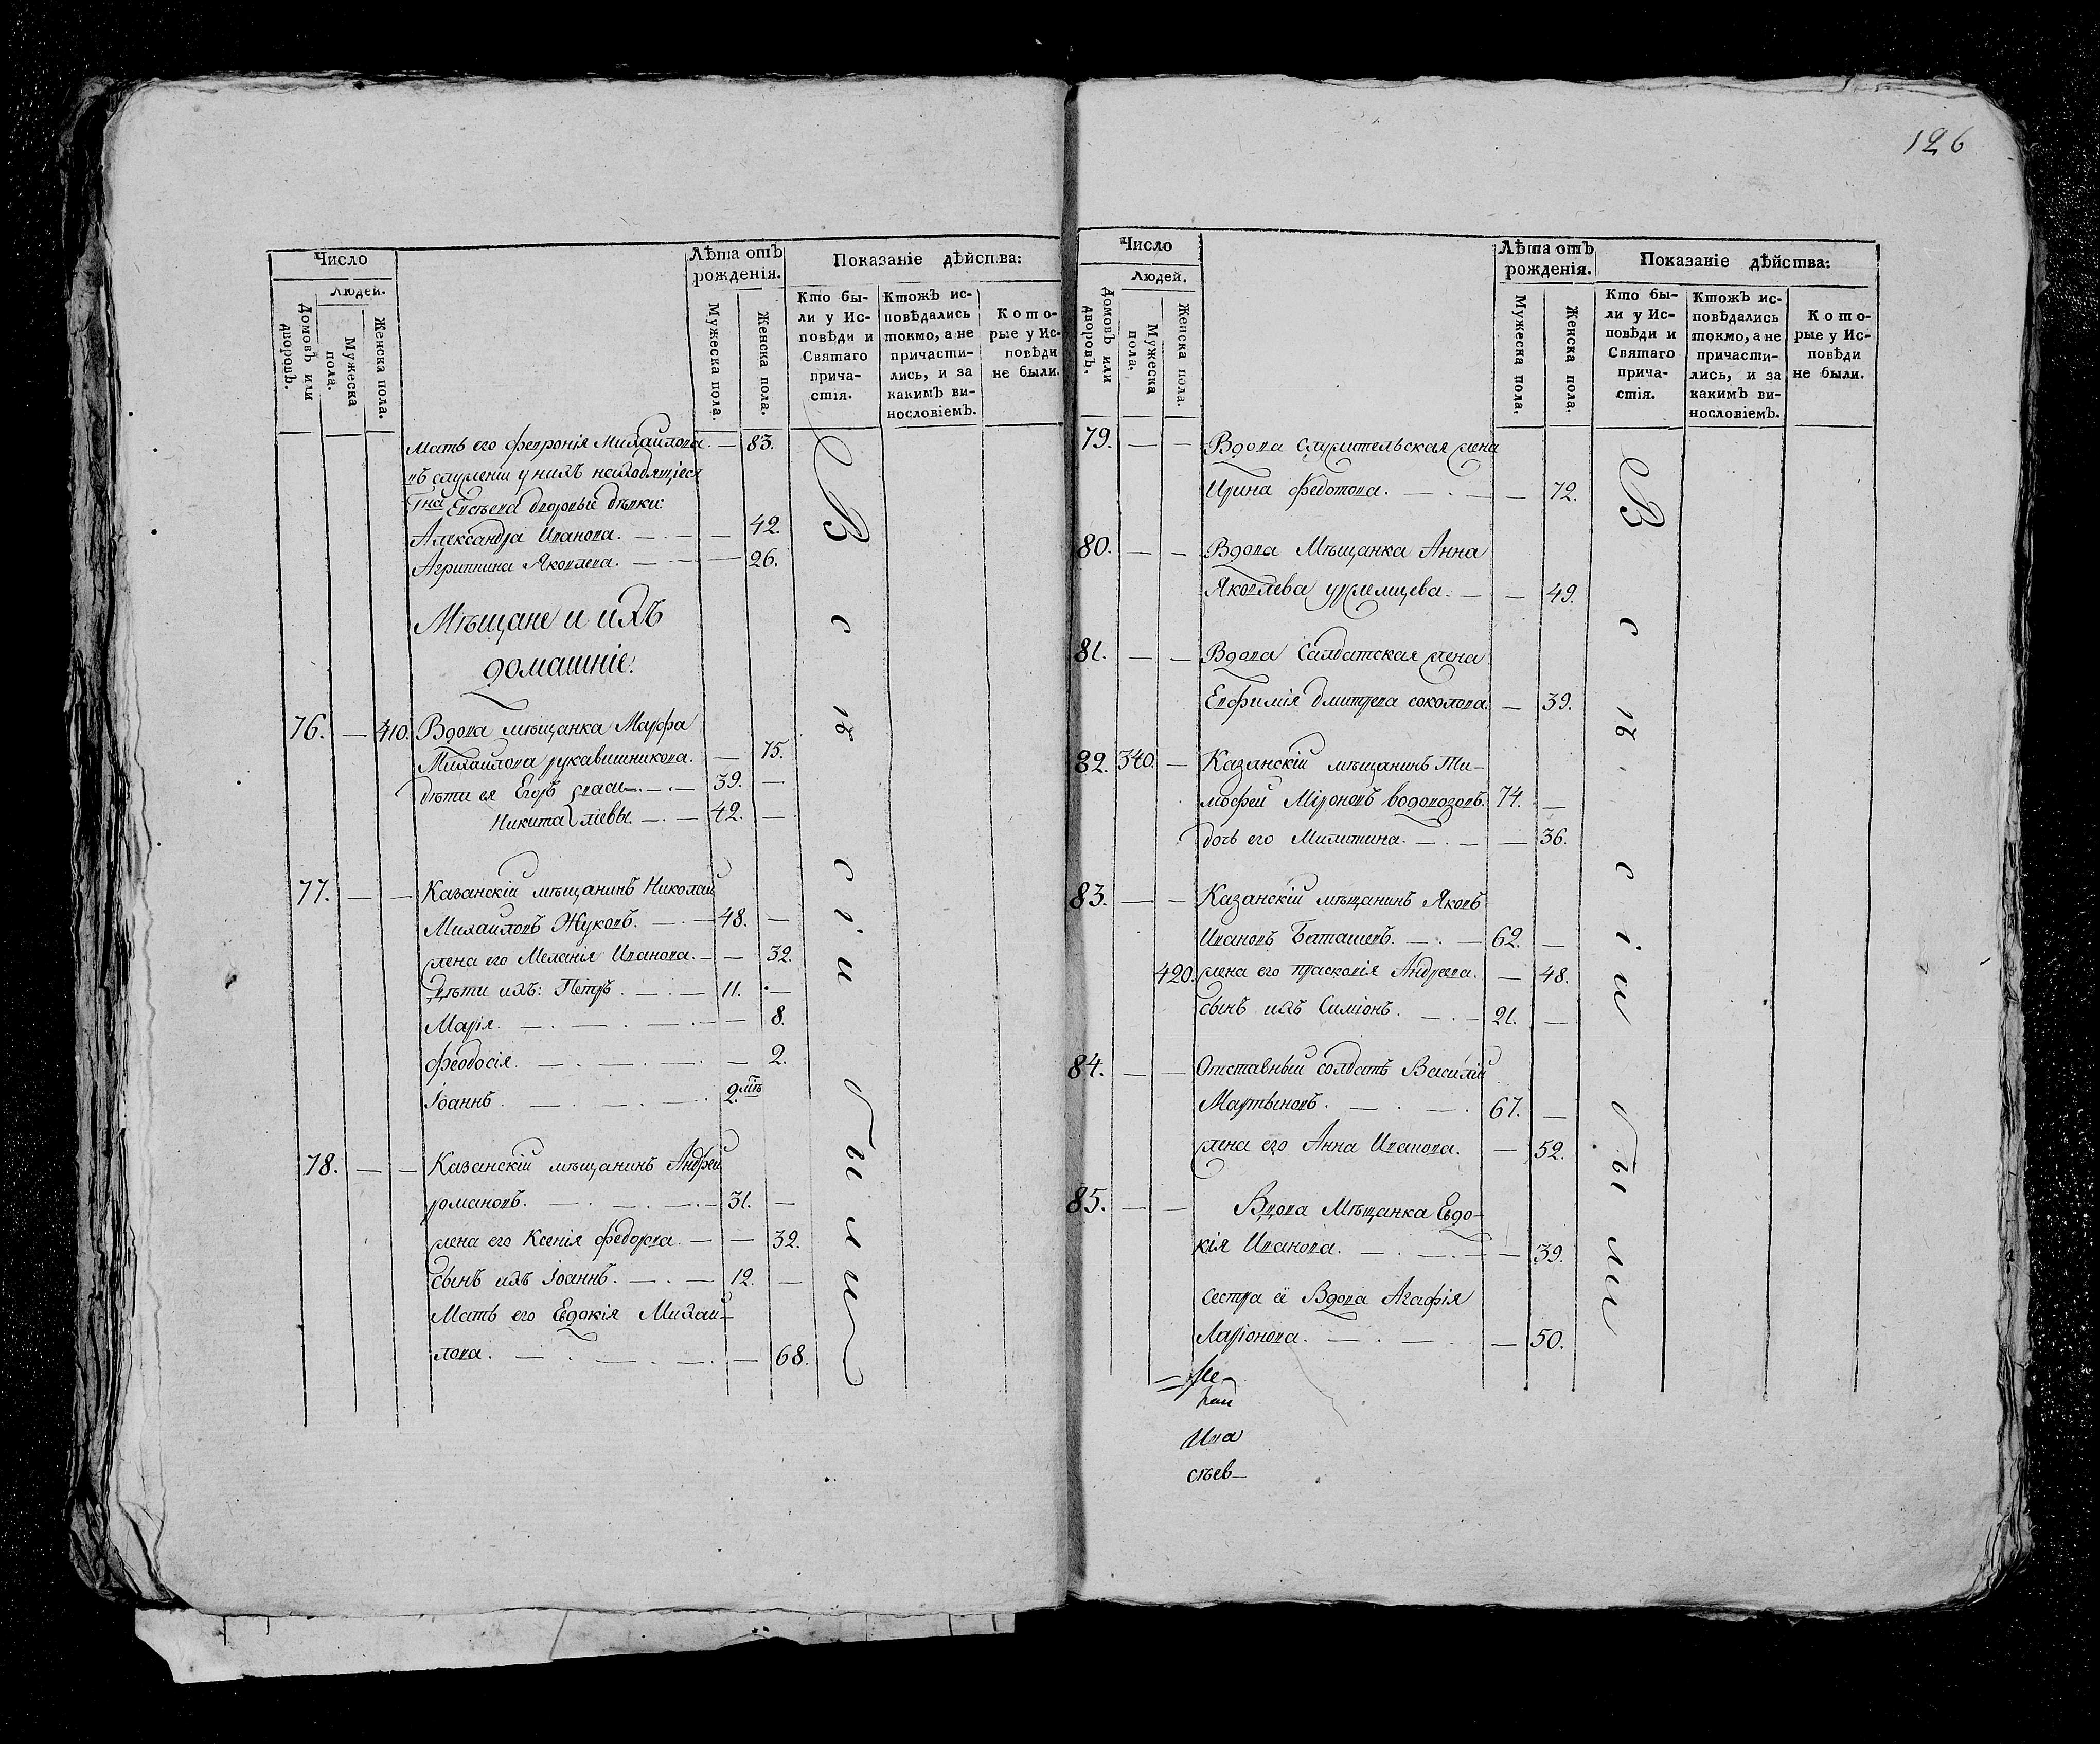 Число
Людей.
Домовъ или дворовъ.
Мужеска пола.
Женска пола.
Лѣта отъ
рожденія.
Мужеска пола.
Женска пола.
Показаніе дѣйства:
Кто бы-
ли у Ис-
повѣди и
Святаго
прича-
стія.
Ктожъ ис-
повѣдались
токмо, а не
причасти-
лись, и за
какимъ ви-
нословіемъ.
Кото-
рые у Ис-
повѣди
не были.
Мать его Феvронія Михайлова. — 83.
въ служеніи у нихъ находящіеся
Гна Евсѣева дворовые дѣвки:
Александра Иванова. — — — 42.
Агриппина Яковлева. — — — 26.
Мѣщане и ихъ
домашніе.
76. — 410. Вдова мѣщанка Марфа
Михайлова рукавишникова. — 75.
дѣти ея Егоръ васи— . — 39. —
Никита лíевы. — . — 42. —
77. — — Казанскій мѣщанинъ Николай
Михайловъ Жуковъ. — . — 48. —
жена его Меланія Иванова. — — 32.
Дѣти ихъ: Петръ. — . — 11. —
Марія. — . — . — . — — 8.
Феодосія. — . — . — . — 2.
Іоаннъ. — . — . — . 2. мць
78. — — Казанскій мѣщанинъ Андрей
романовъ. — . — . — . — 31. —
жена его Ксенія Федорова. — — 32.
сынъ ихъ Іоаннъ. — . — 12. —
Мать его Евдокія Михай—
лова. — . — . — . — 68.
Всѣ сіи были
126
Число
Людей.
Домовъ или дворовъ.
Мужеска пола.
Женска пола.
Лѣта отъ
рожденія.
Мужеска пола.
Женска пола.
Показаніе дѣйства:
Кто бы-
ли у Ис-
повѣди и
Святаго
прича-
стія.
Ктожъ ис-
повѣдались
токмо, а не
причасти-
лись, и за
какимъ ви-
нословіемъ.
Кото-
рые у Ис-
повѣди
не были.
79. — — Вдова служительская жена
Ирина Федотова. — . — — 72.
80. — — Вдова Мѣщанка Анна
Яковлева — — 49.
81. — — Вдова Салдатская жена
Евфимія дмитрева соколова. — 39.
82. 340. — Казанскій мѣщанинъ Ти—
мофей Міроновъ водовозовъ. 74. —
дочь его Милитина. — . — — 36.
83. — — Казанскій мѣщанинъ Яковъ
Ивановъ Баташевъ. — . — 62. —
420. жена его прасковія Андреева. — 48.
сынъ ихъ Симіонъ. — . — 21. —
84. — — Отставный солдатъ Василій
Мартыновъ. — . — . 67. —
жена его Анна Иванова. — 52.
85. — — Вдова Мѣщанка Евдо—
кія Иванова. — . — . — — 39.
сестра ея Вдова Агафія
Ларіонова. — . — . — 50.
Всѣ сіи были
Ива
сѣев—